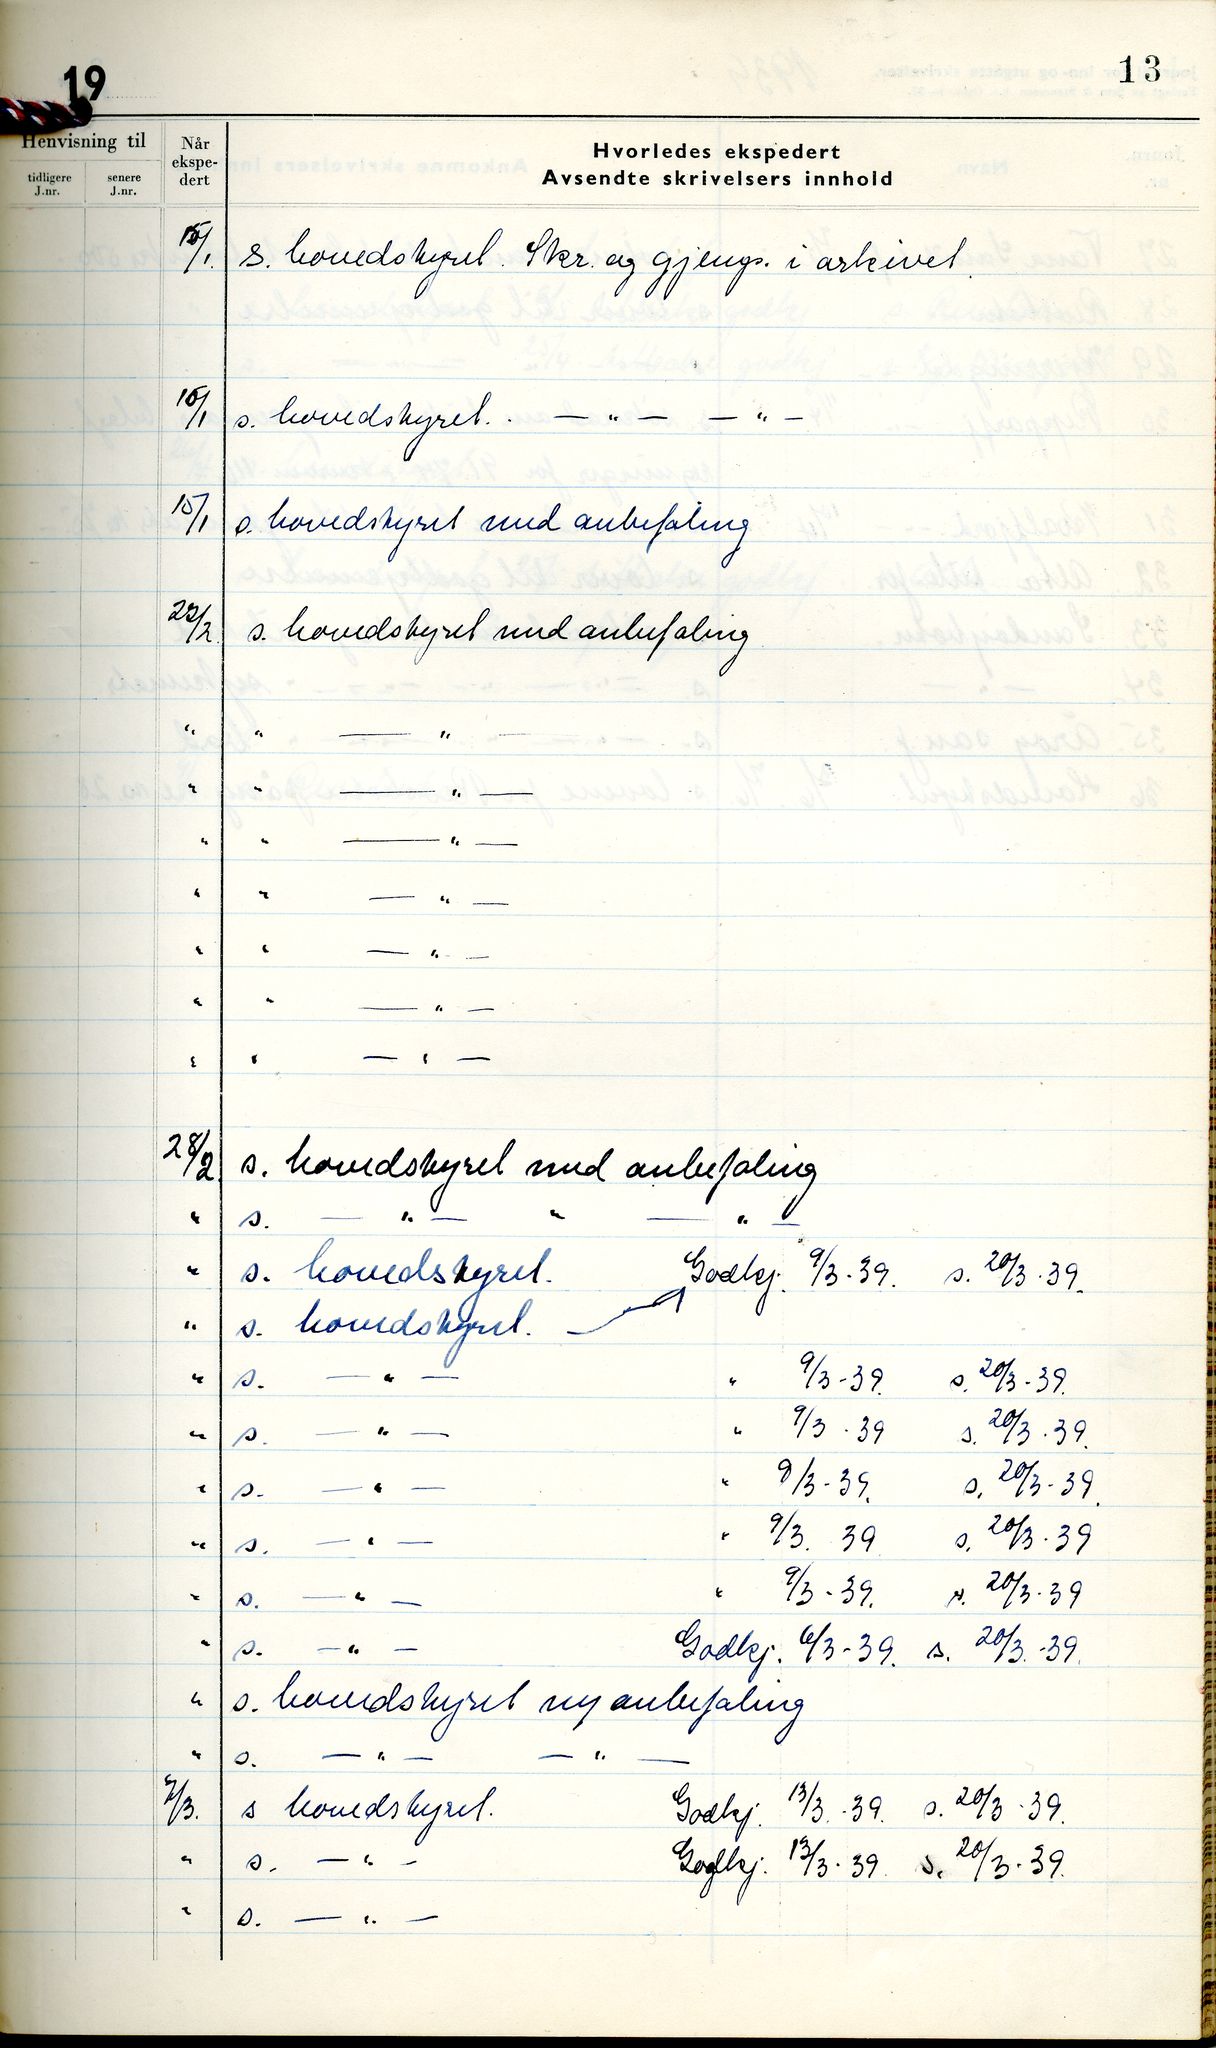 19
13
Henvisning til
tidligere J.nr.
senere J.nr.
Når ekspe- dert
Hvorledes ekspedert
Avsendte skrivelsers innhold
15/1 s. hovedstyret. Skr. og gjengs. i arkivet
16/1 s. hovedstyret. . — " — — " —
15/1 s. hovedstyret med anbefaling
22/2 s. hovedstyret med anbefaling
" " — " —
" " — " —
" " — " —
" " — " —
" " — " —
" " — " —
" " — " —
28/2 s. hovedstyret med anbefaling
" s. — " — " — " —
" s. hovedstyret. Godkj. 9/3-39. s. 20/3-39.
" s. hovedstyret.
" s. — " — " 9/3-39. s. 20/3-39.
" s. — " — " 9/3-39 s. 20/3-39.
" s. — " — " 9/3-39. s. 20/3-39.
" s. — " — " 9/3. 39 s. 20/3-39
" s. — " — " 9/3-39. s. 20/3-39
" s. — " — Godkj. 6/3-39. s. 20/3.-39.
" s. hovedstyret m/ anbefaling
" s. — " — — " —
7/3. s hovedstyret. Godkj. 13/3.-39. s. 20/3-39.
" s. — " — Godkj. 13/3-39. s. 20/3-39.
" s. — " —